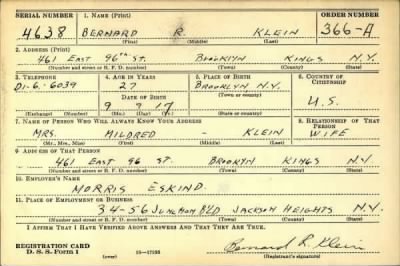 SERIAL NUMBER 1. NAME (Print) ORDER NUMBER
4638 BERNARD R. KLEIN 366-A
(First) (Middle) (Last)
2. ADDRESS (Print)
461 EAST 96TH ST. BROOKLYN KINGS N.Y.
(Number and street or R. F. D. number) (Town) (County) (State)
3. TELEPHONE 4. AGE IN YEARS 5. PLACE OF BIRTH 6. COUNTRY OF CITIZENSHIP
DI-6-6039 27 BROOKLYN N.Y.
DATE OF BIRTH (Town or county)
9 9 17 U.S.
(Exchange) (Number) (Mo.) (Day) (Yr.) (State or country)
7. NAME OF PERSON WHO WILL ALWAYS KNOW YOUR ADDRESS 8. RELATIONSHIP OF THAT PERSON
MRS. MILDRED - KLEIN WIFE
(Mr., Mrs., Miss) (First) (Middle) (Last)
9. ADDRESS OF THAT PERSON
461 EAST 96 ST. BROOKYN KINGS N.Y.
(Number and street or R. F. D. number) (Town) (County) (State)
10. EMPLOYER'S NAME
MORRIS ESKIND
11. PLACE OF EMPLOYMENT OR BUSINESS
34-56 BLVD JACKSON HEIGHTS N.Y.
(Number and street or R. F. D. number) (Town) (County) (State)
I AFFIRM THAT I HAVE VERIFIED ABOVE ANSWERS AND THAT THEY ARE TRUE.
REGISTRATION CARD
D. S. S. FORM 1 (over) 16-17105 Bernard R. Klein